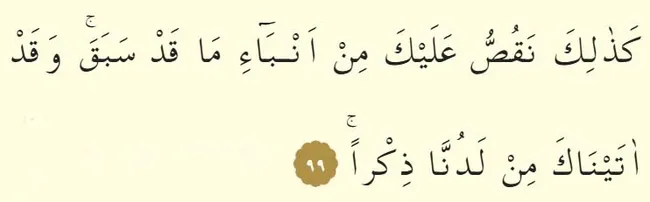 كَذٰلِكَ نَقُصُّ عَلَيْكَ مِنْ اَنْـبَٓاءِ مَا قَدْ سَبَقَۚ وَقَدْ
اٰتَيْنَاكَ مِنْ لَدُنَّا ذِكْراًۚ ٩٩